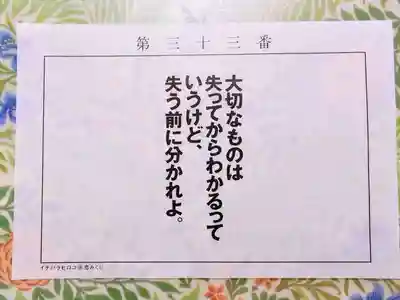 第三十三番
大切なものは
失ってからわかるって
いうけど、
失う前に分かれよ。
イチハラヒロコ恋みくじ